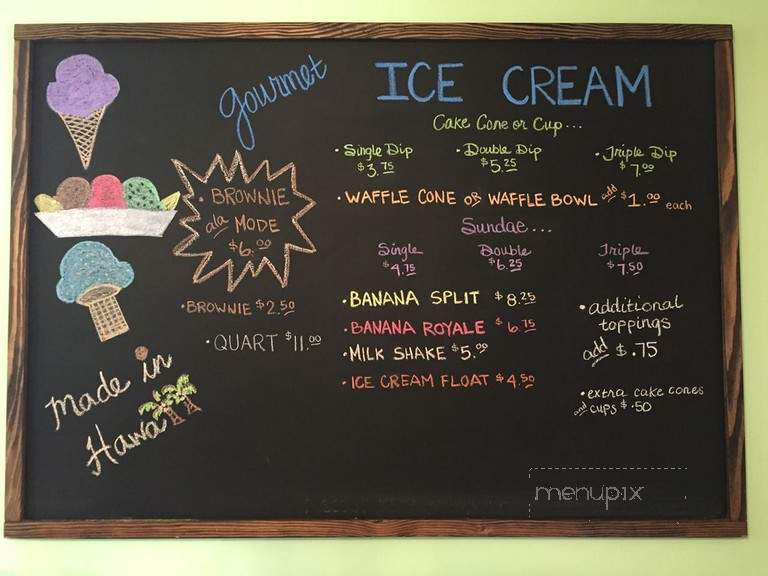 gourmet
ICE CREAM
Cake Cone or Cup...
• Single Dip $3.75
• Double Dip $5.25
• Triple Dip $7.00
• WAFFLE CONE OR WAFFLE BOWL add $1.00 each
Sundae...
Single $4.75
Double $6.25
Triple $7.50
• BROWNIE
ala MODE
$6.00
• BROWNIE $2.50
• QUART $11.00
• BANANA SPLIT $8.25
• BANANA ROYALE $6.75
• MILK SHAKE $5.00
• ICE CREAM FLOAT $4.50
• additional
toppings
add $.75
• extra cake cones
and cups $.50
Made in
Hawaii
menupix